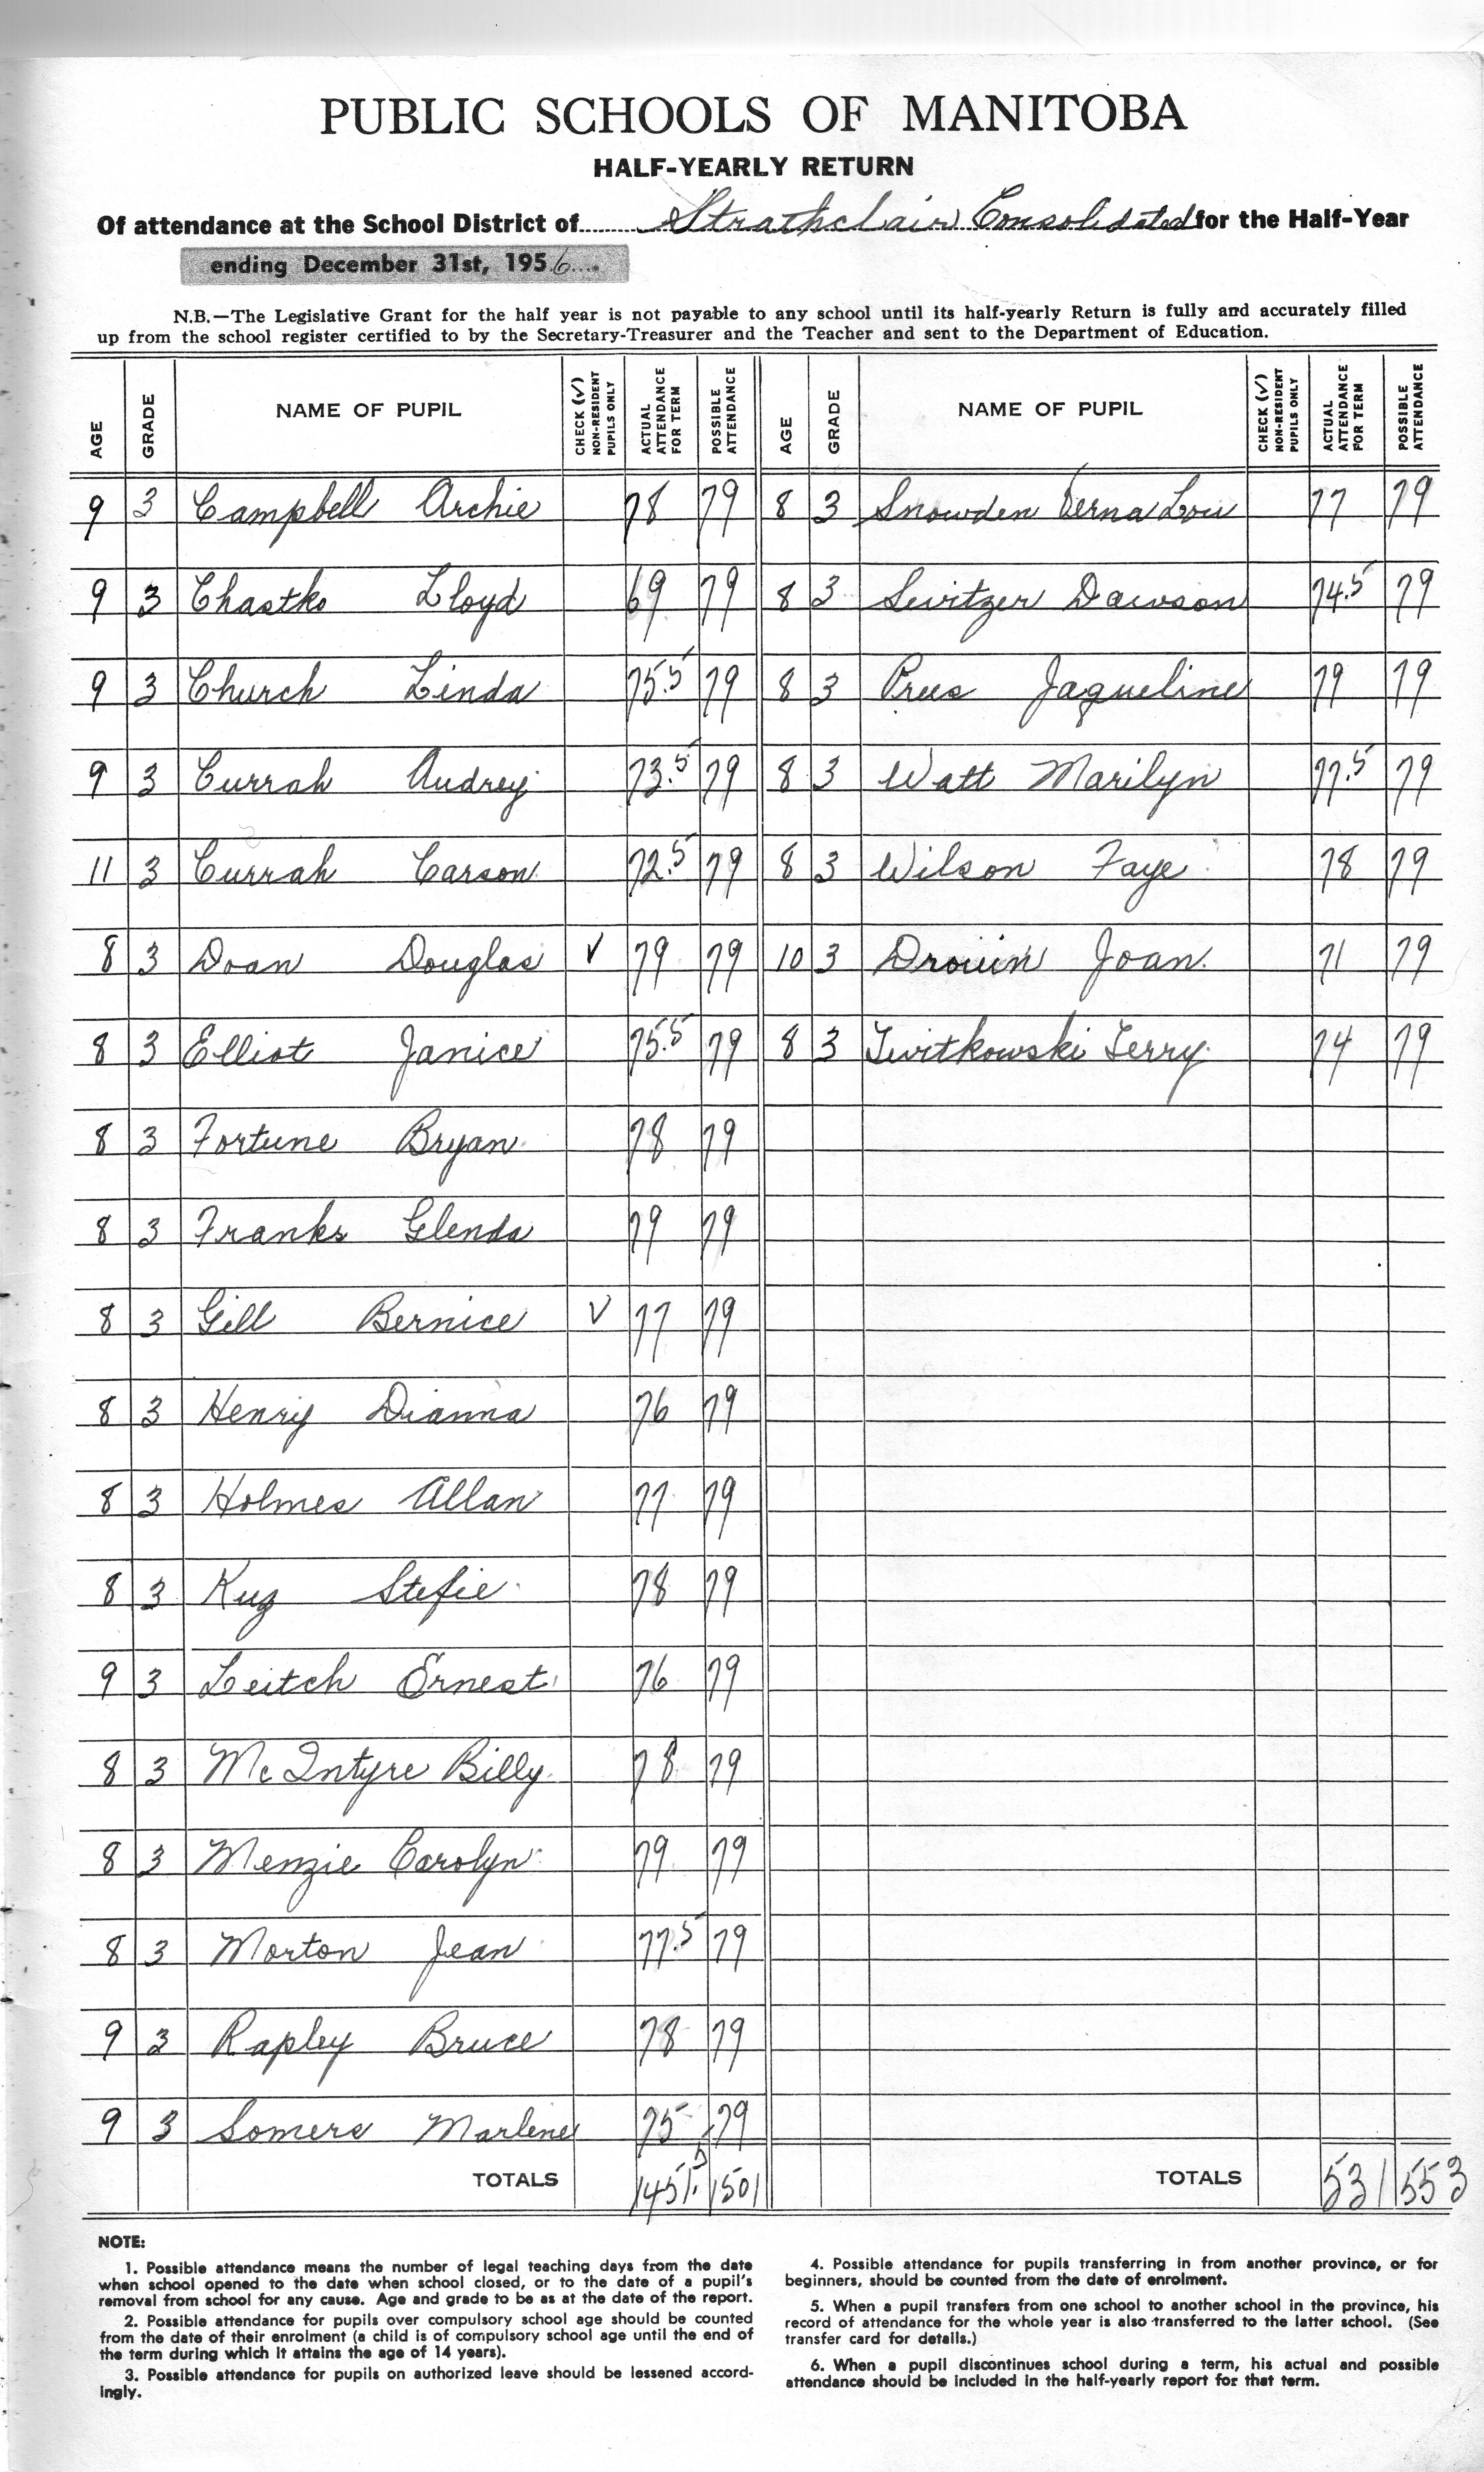 PUBLIC SCHOOLS OF MANITOBA
HALF-YEARLY RETURN
Of attendance at the School District of........ Strathclair Consolidated for the Half-Year
ending December 31st, 1956....
N.B.—The Legislative Grant for the half year is not payable to any school until its half-yearly Return is fully and accurately filled
up from the school register certified to by the Secretary-Treasurer and the Teacher and sent to the Department of Education.
AGE GRADE NAME OF PUPIL CHECK (√) NON-RESIDENT PUPILS ONLY ACTUAL ATTENDANCE FOR TERM POSSIBLE ATTENDANCE AGE GRADE NAME OF PUPIL CHECK (√) NON-RESIDENT PUPILS ONLY ACTUAL ATTENDANCE FOR TERM POSSIBLE ATTENDANCE
9 3 Campbell Archie 78 79 8 3 Snowden Verna Lou 77 79
9 3 Chastko Lloyd 69 79 8 3 Switzer Dawson 74.5 79
9 3 Church Linda 75.5 79 8 3 Prees Jaqueline 79 79
9 3 Currah Audrey 73.5 79 8 3 Watt Marilyn 77.5 79
11 3 Currah Carson 72.5 79 8 3 Wilson Faye 78 79
8 3 Doan Douglas √ 79 79 10 3 Drouin Joan 71 79
8 3 Elliot Janice 75.5 79 8 3 Twitkowski Terry 74 79
8 3 Fortune Bryan 78 79
8 3 Franks Glenda 79 79
8 3 Gill Bernice √ 77 79
8 3 Henry Dianna 76 79
8 3 Holmes Allan 77 79
8 3 Kuz Stefie 78 79
9 3 Leitch Ernest 76 79
8 3 McIntyre Billy 78 79
8 3 Menzie Carolyn 79 79
8 3 Morton Jean 77.5 79
9 3 Rapley Bruce 78 79
9 3 Somers Marlene 75 79
TOTALS 1451.5 1501 TOTALS 531 553
NOTE:
1. Possible attendance means the number of legal teaching days from the date
when school opened to the date when school closed, or to the date of a pupil's
removal from school for any cause. Age and grade to be as at the date of the report.
2. Possible attendance for pupils over compulsory school age should be counted
from the date of their enrolment (a child is of compulsory school age until the end of
the term during which it attains the age of 14 years).
3. Possible attendance for pupils on authorized leave should be lessened accord-
ingly.
4. Possible attendance for pupils transferring in from another province, or for
beginners, should be counted from the date of enrolment.
5. When a pupil transfers from one school to another school in the province, his
record of attendance for the whole year is also transferred to the latter school. (See
transfer card for details.)
6. When a pupil discontinues school during a term, his actual and possible
attendance should be included in the half-yearly report for that term.